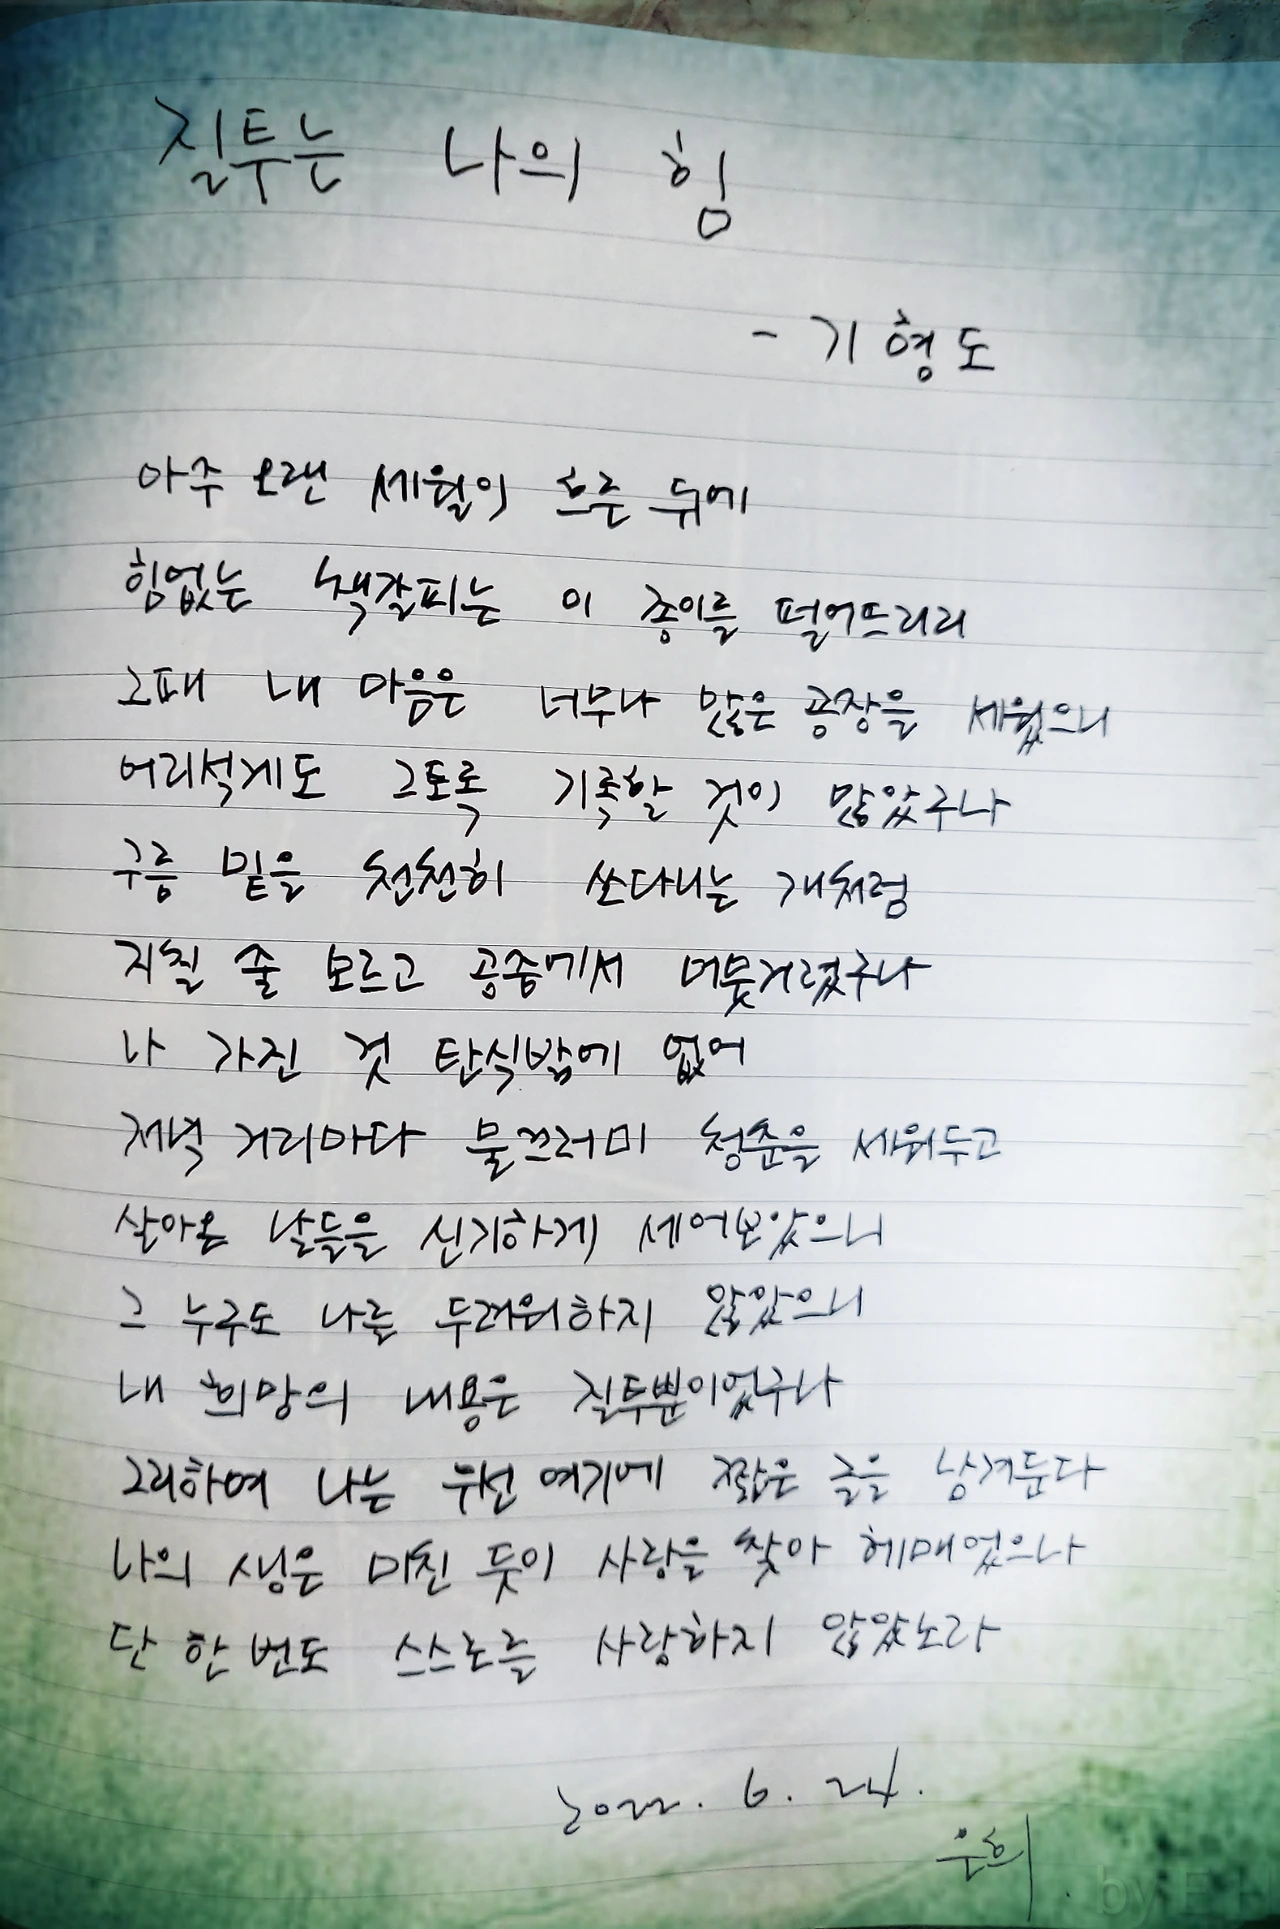 질투는 나의 힘
- 기형도
아주 오랜 세월이 흐른 뒤에
힘없는 책갈피는 이 종이를 떨어뜨리리
그때 내 마음은 너무나 많은 공장을 세웠으니
어리석게도 그토록 기록할 것이 많았구나
구름 밑을 천천히 쏘다니는 개처럼
지칠 줄 모르고 공중에서 머뭇거렸구나
나 가진 것 탄식밖에 없어
저녁 거리마다 물끄러미 청춘을 세워두고
살아온 날들을 신기하게 세어보았으니
그 누구도 나를 두려워하지 않았으니
내 희망의 내용은 질투뿐이었구나
그리하여 나는 우선 여기에 짧은 글을 남겨둔다
나의 생은 미친 듯이 사랑을 찾아 헤매었으나
단 한 번도 스스로를 사랑하지 않았노라
2022. 6. 24.
은희
by E H